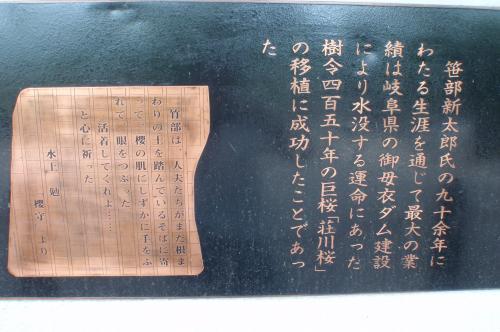 笹部新太郎氏の九十余年に
わたる生涯を通じて最大の業
績は岐阜県の御母衣ダム建設
により水没する運命にあった
樹令四百五十年の巨桜「荘川桜」
の移植に成功したことであっ
た
竹部は、人夫たちがまだ根ま
わりの土を踏んでいるそばに寄
って、櫻の肌にしずかに手をふ
れて、眼をつぶった
活着してくれよ……
と心に祈った
水上 勉
櫻守 より